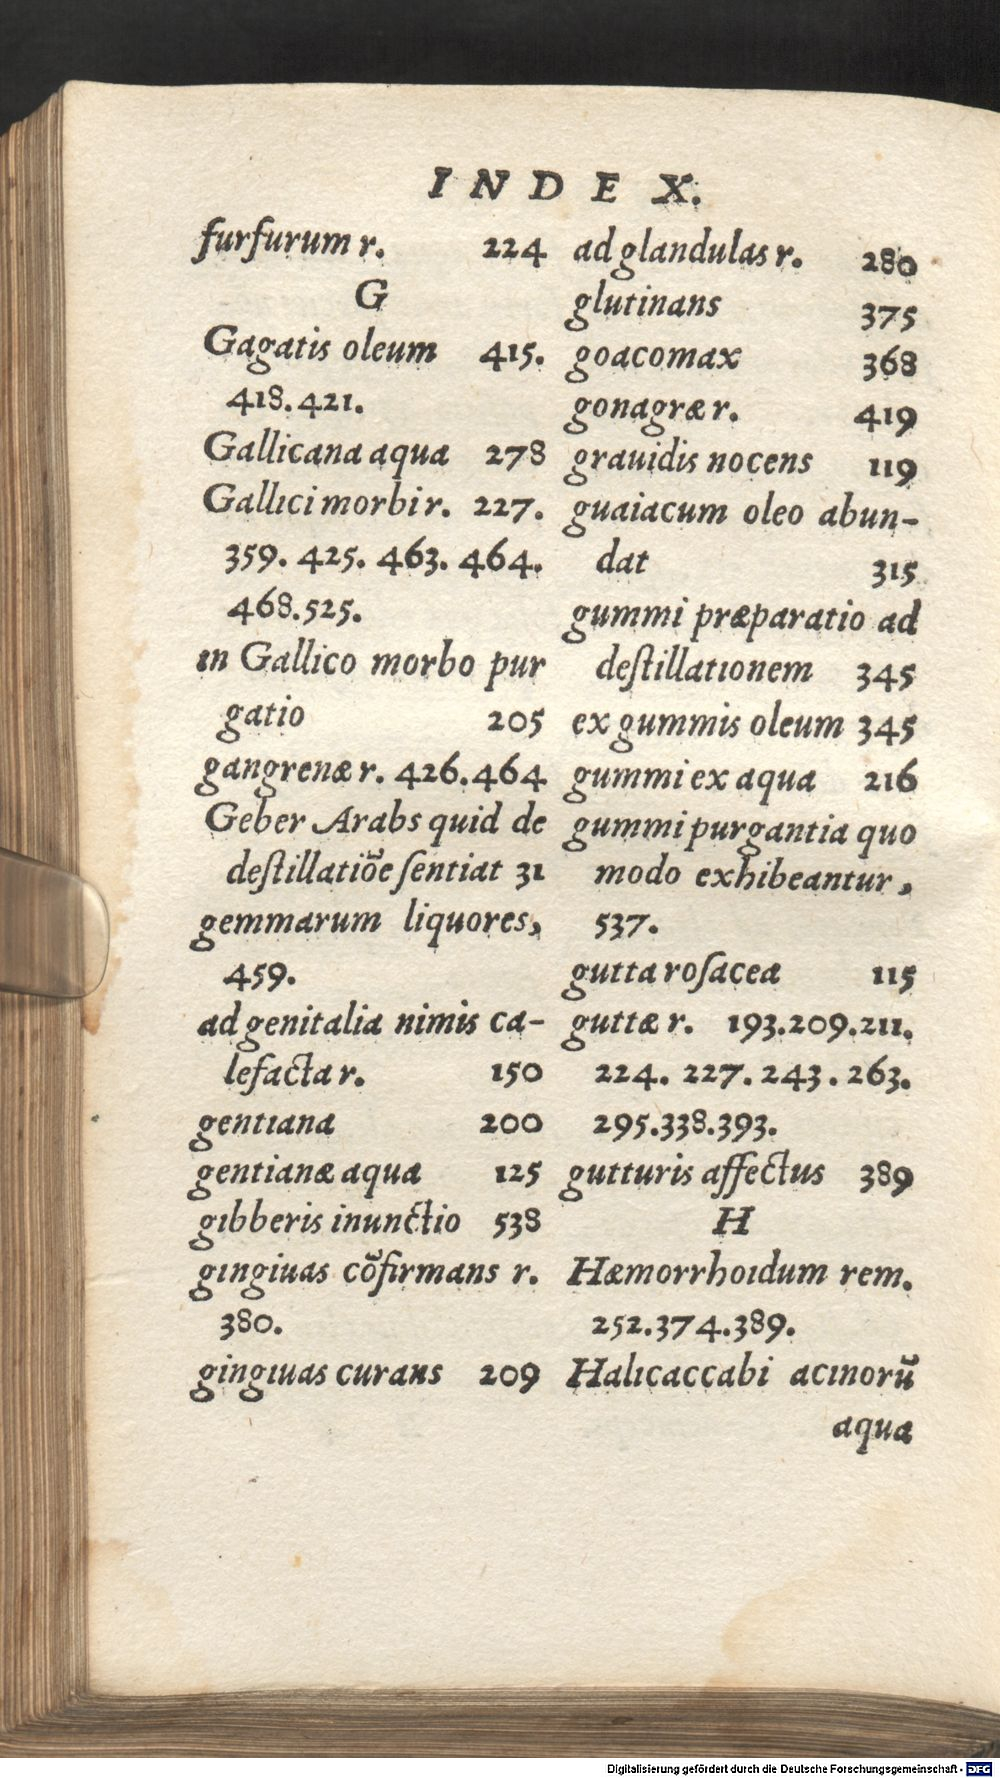 INDEX.
furfurum r. 224
G
Gagatis oleum 415.
418.421.
Gallicana aqua 278
Gallici morbi r. 227.
359. 425. 463. 464.
468.525.
in Gallico morbo pur
gatio 205
gangrenæ r. 426.464
Geber Arabs quid de
destillatiōe sentiat 31
gemmarum liquores,
459.
ad genitalia nimis ca-
lefacta r. 150
gentiana 200
gentianæ aqua 125
gibberis inunctio 538
gingiuas cōfirmans r.
380.
gingiuas curans 209
ad glandulas r. 280
glutinans 375
goacomax 368
gonagræ r. 419
grauidis nocens 119
guaiacum oleo abun-
dat 315
gummi præparatio ad
destillationem 345
ex gummis oleum 345
gummi ex aqua 216
gummi purgantia quo
modo exhibeantur,
537.
gutta rosacea 115
guttæ r. 193.209.211.
224. 227. 243. 263.
295.338.393.
gutturis affectus 389
H
Hæmorrhoidum rem.
252.374.389.
Halicaccabi acinorū
aqua
Digitalisierung gefördert durch die Deutsche Forschungsgemeinschaft - DFG